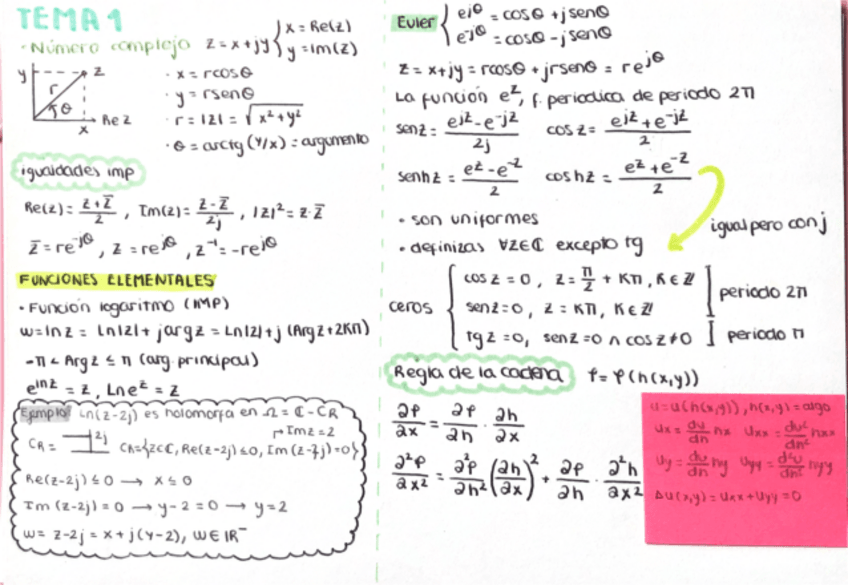 TEMA 1
· Número complejo z = x + jy { x = Re(z)
y = Im(z)
y z r θ x Re z
· x = r cos θ
· y = r sen θ
· r = |z| = √(x² + y²)
· θ = arctg (y/x) = argumento
igualdades imp
Re(z) = (z + z̄)/2 , Im(z) = (z - z̄)/2j , |z|² = z · z̄
z̄ = re^-jθ , z = re^jθ , z^-1 = -re^jθ
FUNCIONES ELEMENTALES
· Función logaritmo (IMP)
w = ln z = Ln|z| + j arg z = Ln|z| + j (Arg z + 2Kπ)
-π < Arg z ≤ π (arg. principal)
e^ln z = z , Ln e^z = z
Ejemplo Ln(z-2j) es holomorfa en Ω = ℂ - CR
Im z = 2
CR = 2j CR = {z ∈ ℂ, Re(z-2j) ≤ 0, Im(z-2j) = 0}
Re(z-2j) ≤ 0 → x ≤ 0
Im (z-2j) = 0 → y - 2 = 0 → y = 2
w = z - 2j = x + j(y-2), w ∈ ℝ⁻
Euler { e^jθ = cos θ + j sen θ
e^-jθ = cos θ - j sen θ
z = x + jy = r cos θ + j r sen θ = re^jθ
La función e^z, f. periodica de periodo 2π
sen z = (e^jz - e^-jz)/2j cos z = (e^jz + e^-jz)/2
senh z = (e^z - e^-z)/2 cosh z = (e^z + e^-z)/2
· son uniformes
igual pero con j
· definizas ∀z∈ℂ excepto tg
ceros { cos z = 0 , z = π/2 + Kπ , K ∈ ℤ
sen z = 0 , z = Kπ , K ∈ ℤ ] periodo 2π
tg z = 0 , sen z = 0 ∩ cos z ≠ 0 ] periodo π
Regla de la cadena f = f(h(x,y))
∂f/∂x = ∂f/∂h · ∂h/∂x
∂²f/∂x² = ∂²f/∂h² (∂h/∂x)² + ∂f/∂h · ∂²h/∂x²
u = u(h(x,y)), h(x,y) = algo
ux = du/dh hx uxx = du²/dh² hxx
uy = du/dh hy uyy = d²u/dh² hyy
Δu(x,y) = uxx + uyy = 0